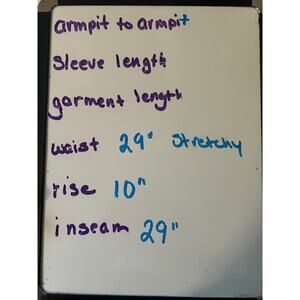 armpit to armpit
Sleeve length
garment length
waist 29" Stretchy
rise 10"
inseam 29"